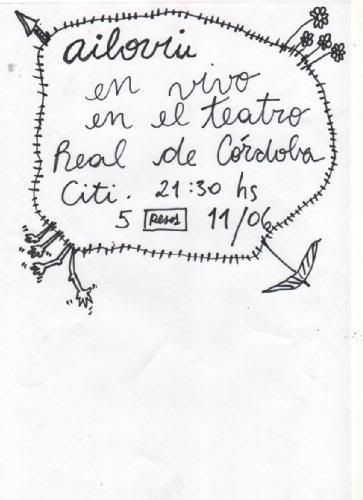 ailoviu
en vivo
en el teatro
Real de Córdoba
Citi. 21:30 hs
5 pesos 11/06